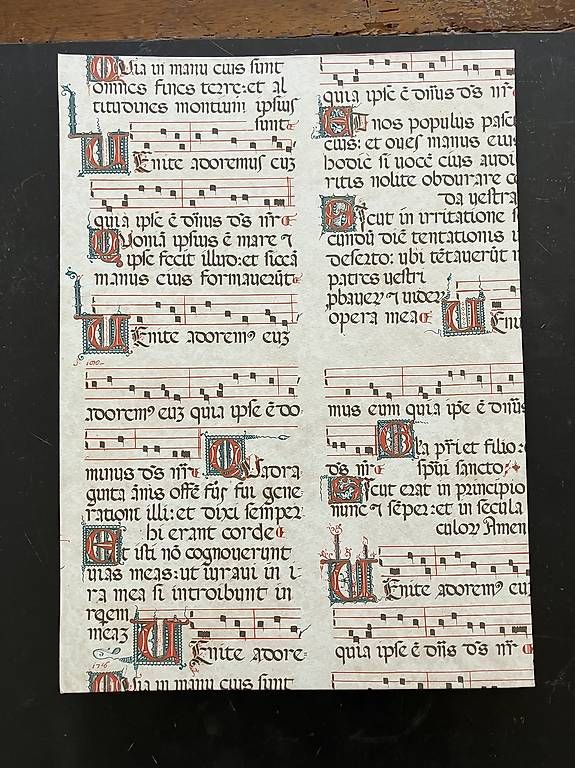 Quia in manu eius sunt
omnes fines terre: et al
titudines montium ipsius
sunt
Uenite adoremus euʒ
quia ipse ē dn̄us d̄s nr̄
Quoniā ipsius ē mare ⁊
ipse fecit illud: et siccā
manus eius formauerūt
Uenite adoremꝰ euʒ
adoremꝰ euʒ quia ipse ē do
minus d̄s nr̄
Quadra
ginta ānis offē fūs fui gene
rationi illi: et dixi semper
hi erant corde
Et isti nō cognouerunt
uias meas: ut iuraui in i
ra mea si introibunt in
rqem
meaʒ
Uenite adore
Quia in manu eius sunt
quia ipse ē dn̄us d̄s nr̄
Et nos populus pasc
eius: et oues manus eius
hodie si uocē eius audi
ritis nolite obdurare co
da uestra
Sicut in irritatione s
cundū diē tentationis i
deserto: ubi tētauerūt m
patres uestri
pbauerꝰ ⁊ uider
opera mea
Ueni
mus eum quia ip̄e ē dn̄us
d̄s nr̄
Gl'a pr̄i et filio:
sp̄ui sancto:
Sicut erat in principio
nunc ⁊ sēper: et in secula
culoꝝ Amen
Uenite adoremꝰ eu
quia ipse ē dn̄s d̄s nr̄